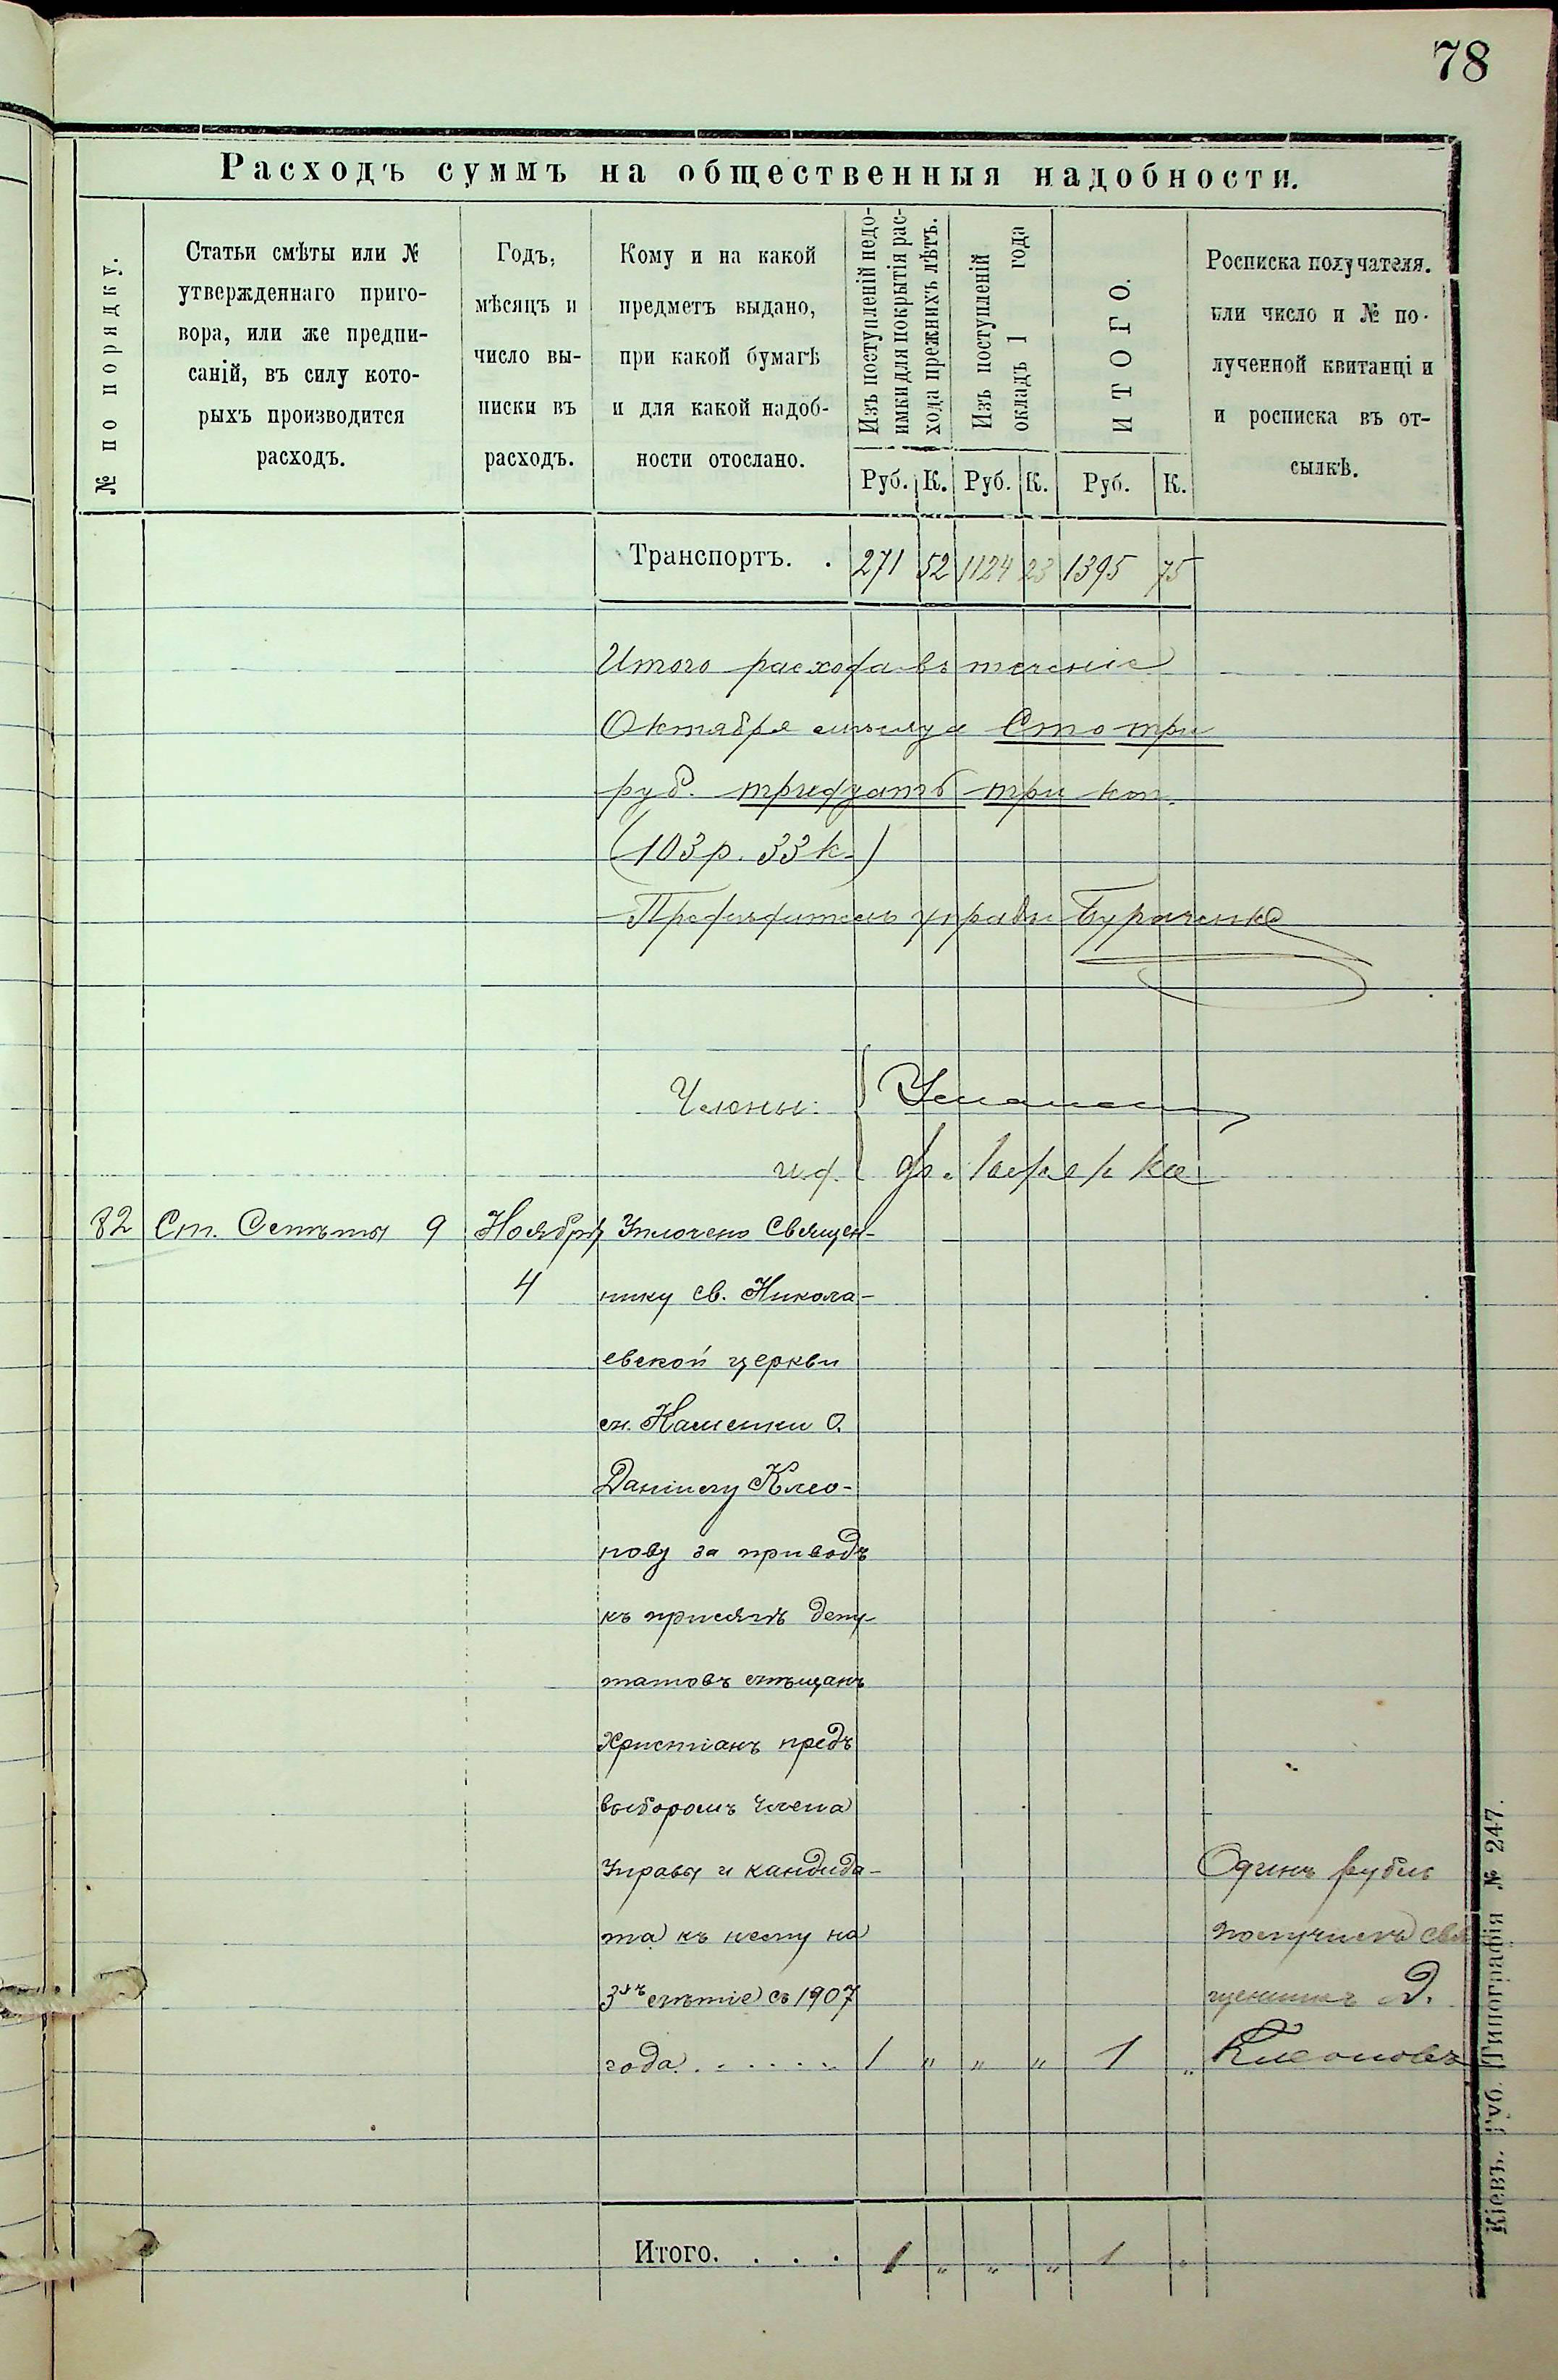 78
Расходъ суммъ на общественныя надобности.
№ по порядку.
Статьи смѣты или №
утвержденнаго приго-
вора, или же предпи-
саній, въ силу кото-
рыхъ производится
расходъ.
Годъ,
мѣсяцъ и
число вы-
писки въ
расходъ.
Кому и на какой
предметъ выдано,
при какой бумагѣ
и для какой надоб-
ности отослано.
Изъ поступленій недо-
имки для покрытія рас-
хода прежнихъ лѣтъ.
Изъ поступленій
окладъ 1 года
ИТОГО.
Росписка получателя.
или число и № по-
лученной квитанціи
и росписка въ от-
сылкѣ.
Руб. К. Руб. К. Руб. К.
Транспортъ. . 271 52 1124 23 1395 75
Итого расхода въ теченіе
Октября мѣсяца Сто три
руб. тридцать три коп.
(103 р. 33 к.)
Предсѣдатель управы
Члены:
и.д.
82 Ст. Смѣты 9 Ноября Уплочено Священ-
4 нику св. Никола-
евской церкви
м. Каменки О.
Даніилу Клео-
пову за приводъ
къ присягѣ депу-
татовъ мѣщанъ
Христіанъ предъ
выборомъ Члена
Управы и кандида-
та къ нему на
3хъ лѣтіе съ 1907
года . . . . . . 1 " " " 1 "
Одинъ рубль
получилъ свя
щенникъ Д.
Клеоповъ
Итого. . . . 1 " " " 1 "
Кіевъ. Губ. Типографія № 247.